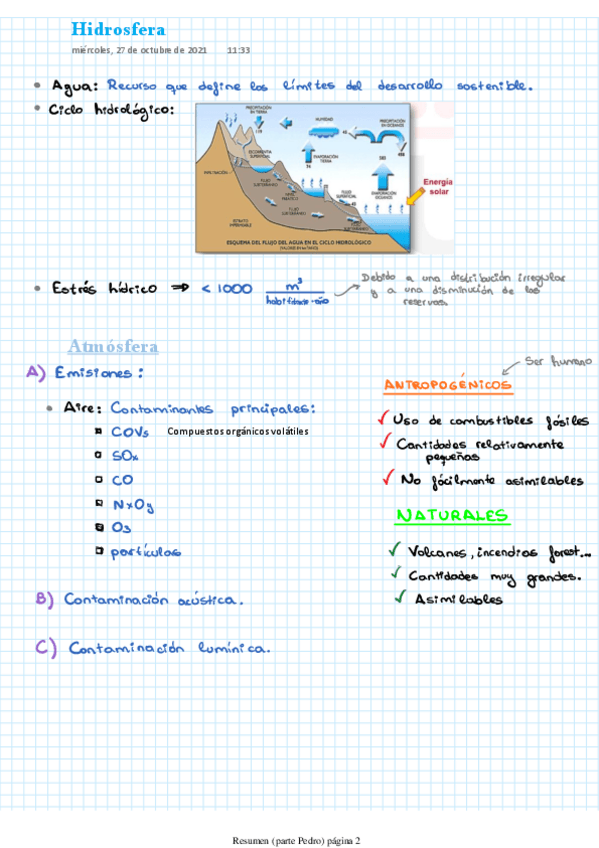 Hidrosfera
miércoles, 27 de octubre de 2021 11:33
Agua: Recurso que define los límites del desarrollo sostenible.
Ciclo hidrológico:
PRECIPITACIÓN EN TIERRA
HUMEDAD
PRECIPITACIÓN EN OCÉANOS
ESCORRENTÍA SUPERFICIAL
EVAPORACIÓN TIERRA
INFILTRACIÓN
FLUJO SUBTERRÁNEO
NIVEL FREÁTICO
FLUJO SUPERFICIAL
EVAPORACIÓN OCÉANOS
FLUJO SUBTERRÁNEO
FLUJO SUBTERRÁNEO
ESTRATO IMPERMEABLE
Energía solar
ESQUEMA DEL FLUJO DEL AGUA EN EL CICLO HIDROLÓGICO
Estrés hídrico ⇒ < 1000 m³
habitante·año
Debido a una distribución irregular
y a una disminución de las
reservas.
Atmósfera
A) Emisiones:
Aire: Contaminantes principales:
COVs Compuestos orgánicos volátiles
SOx
CO
NxOy
O3
partículas
B) Contaminación acústica.
C) Contaminación lumínica.
Ser humano
ANTROPOGÉNICOS
✓ Uso de combustibles fósiles
✓ Cantidades relativamente
pequeñas
✓ No fácilmente asimilables
NATURALES
✓ Volcanes, incendios forest...
✓ Cantidades muy grandes.
✓ Asimilables
Resumen (parte Pedro) página 2